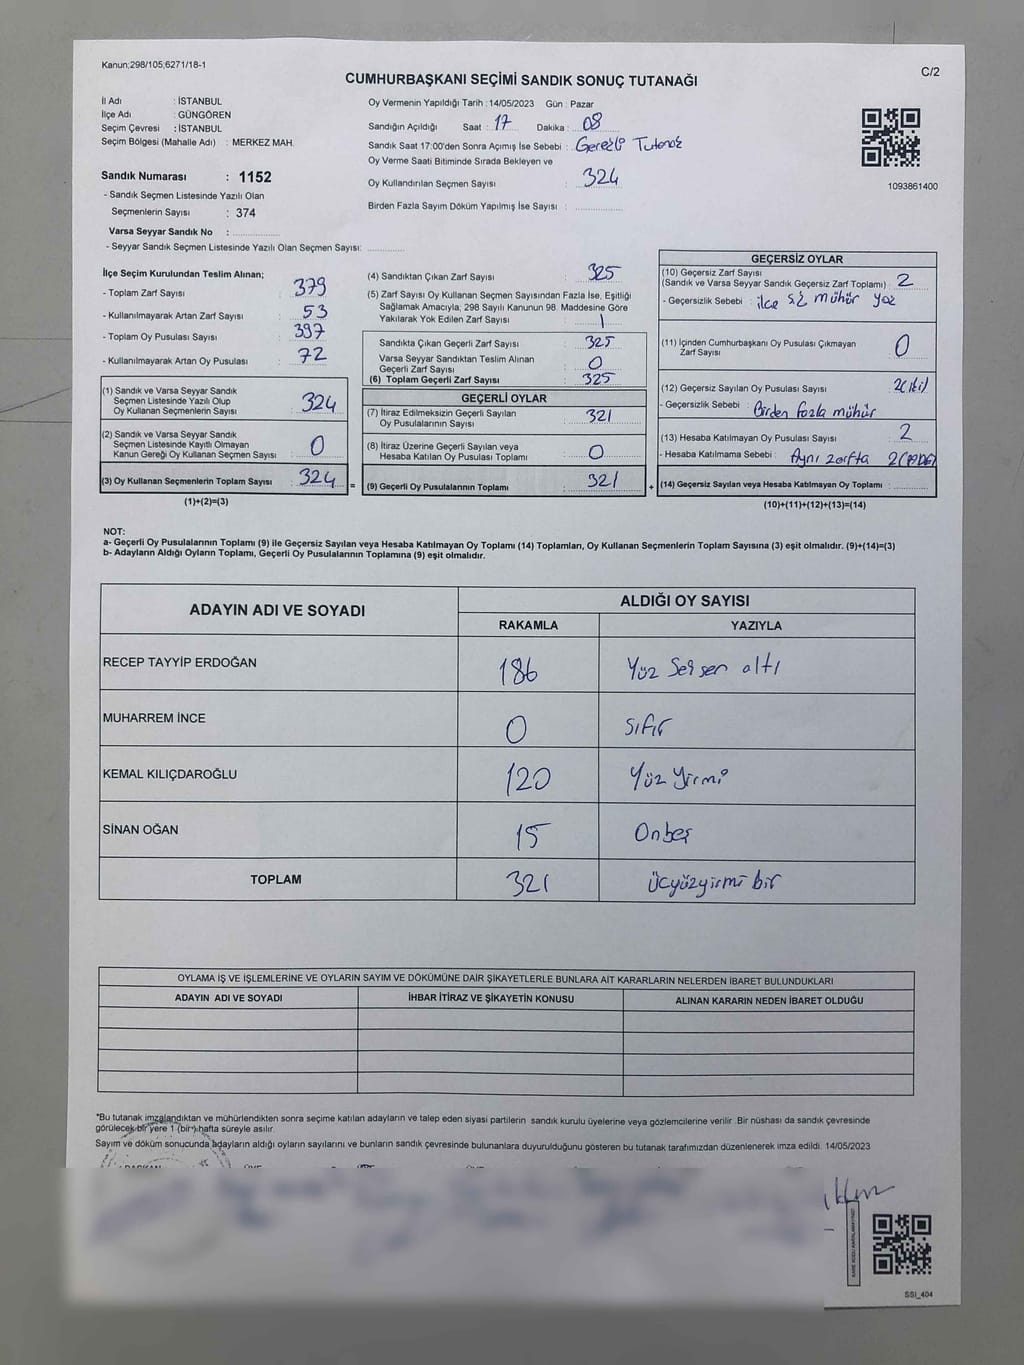 Kanun;298/105,6271/18-1
C/2
CUMHURBAŞKANI SEÇİMİ SANDIK SONUÇ TUTANAĞI
İl Adı : İSTANBUL
İlçe Adı : GÜNGÖREN
Seçim Çevresi : İSTANBUL
Seçim Bölgesi (Mahalle Adı) : MERKEZ MAH.
Sandık Numarası : 1152
- Sandık Seçmen Listesinde Yazılı Olan
Seçmenlerin Sayısı : 374
Varsa Seyyar Sandık No :
- Seyyar Sandık Seçmen Listesinde Yazılı Olan Seçmen Sayısı:
Oy Vermenin Yapıldığı Tarih : 14/05/2023 Gün : Pazar
Sandığın Açıldığı Saat : 17 Dakika : 08
Sandık Saat 17:00'den Sonra Açımış İse Sebebi :
Oy Verme Saati Bitiminde Sırada Bekleyen ve
Oy Kullandırılan Seçmen Sayısı : 324
Birden Fazla Sayım Döküm Yapılmış İse Sayısı :
1093861400
İlçe Seçim Kurulundan Teslim Alınan;
- Toplam Zarf Sayısı : 379
- Kullanılmayarak Artan Zarf Sayısı : 53
- Toplam Oy Pusulası Sayısı : 397
- Kullanılmayarak Artan Oy Pusulası : 72
(1) Sandık ve Varsa Seyyar Sandık
Seçmen Listesinde Yazılı Olup
Oy Kullanan Seçmenlerin Sayısı : 324
(2) Sandık ve Varsa Seyyar Sandık
Seçmen Listesinde Kayıtlı Olmayan
Kanun Gereği Oy Kullanan Seçmen Sayısı : 0
(3) Oy Kullanan Seçmenlerin Toplam Sayısı : 324 =
(1)+(2)=(3)
(4) Sandıktan Çıkan Zarf Sayısı : 325
(5) Zarf Sayısı Oy Kullanan Seçmen Sayısından Fazla İse, Eşitliği
Sağlamak Amacıyla; 298 Sayılı Kanunun 98. Maddesine Göre
Yakılarak Yok Edilen Zarf Sayısı : 1
Sandıkta Çıkan Geçerli Zarf Sayısı : 325
Varsa Seyyar Sandıktan Teslim Alınan
Geçerli Zarf Sayısı : 0
(6) Toplam Geçerli Zarf Sayısı : 325
GEÇERLİ OYLAR
(7) İtiraz Edilmeksizin Geçerli Sayılan
Oy Pusulalarının Sayısı : 321
(8) İtiraz Üzerine Geçerli Sayılan veya
Hesaba Katılan Oy Pusulası Toplamı : 0
(9) Geçerli Oy Pusulalarının Toplamı : 321 +
GEÇERSİZ OYLAR
(10) Geçersiz Zarf Sayısı
(Sandık ve Varsa Seyyar Sandık Geçersiz Zarf Toplamı) : 2
- Geçersizlik Sebebi : ilçe mühür
(11) İçinden Cumhurbaşkanı Oy Pusulası Çıkmayan
Zarf Sayısı : 0
(12) Geçersiz Sayılan Oy Pusulası Sayısı 2(iki)
- Geçersizlik Sebebi : Birden fazla mühür
(13) Hesaba Katılmayan Oy Pusulası Sayısı 2
- Hesaba Katılmama Sebebi : Aynı zarfta
(14) Geçersiz Sayılan veya Hesaba Katılmayan Oy Toplamı :
(10)+(11)+(12)+(13)=(14)
NOT:
a- Geçerli Oy Pusulalarının Toplamı (9) ile Geçersiz Sayılan veya Hesaba Katılmayan Oy Toplamı (14) Toplamları, Oy Kullanan Seçmenlerin Toplam Sayısına (3) eşit olmalıdır. (9)+(14)=(3)
b- Adayların Aldığı Oyların Toplamı, Geçerli Oy Pusulalarının Toplamına (9) eşit olmalıdır.
ADAYIN ADI VE SOYADI
ALDIĞI OY SAYISI
RAKAMLA YAZIYLA
RECEP TAYYİP ERDOĞAN 186 Yüz Seksen altı
MUHARREM İNCE 0 Sıfır
KEMAL KILIÇDAROĞLU 120 Yüz Yirmi
SİNAN OĞAN 15 Onbeş
TOPLAM 321 Üçyüzyirmi bir
OYLAMA İŞ VE İŞLEMLERİNE VE OYLARIN SAYIM VE DÖKÜMÜNE DAİR ŞİKAYETLERLE BUNLARA AİT KARARLARIN NELERDEN İBARET BULUNDUKLARI
ADAYIN ADI VE SOYADI İHBAR İTİRAZ VE ŞİKAYETİN KONUSU ALINAN KARARIN NEDEN İBARET OLDUĞU
*Bu tutanak imzalandıktan ve mühürlendikten sonra seçime katılan adayların ve talep eden siyasi partilerin sandık kurulu üyelerine veya gözlemcilerine verilir. Bir nüshası da sandık çevresinde
görülecek bir yere 1 (bir) hafta süreyle asılır.
Sayım ve döküm sonucunda adayların aldığı oyların sayılarını ve bunların sandık çevresinde bulunanlara duyurulduğunu gösteren bu tutanak tarafımızdan düzenlenerek imza edildi. 14/05/2023
SSI_404